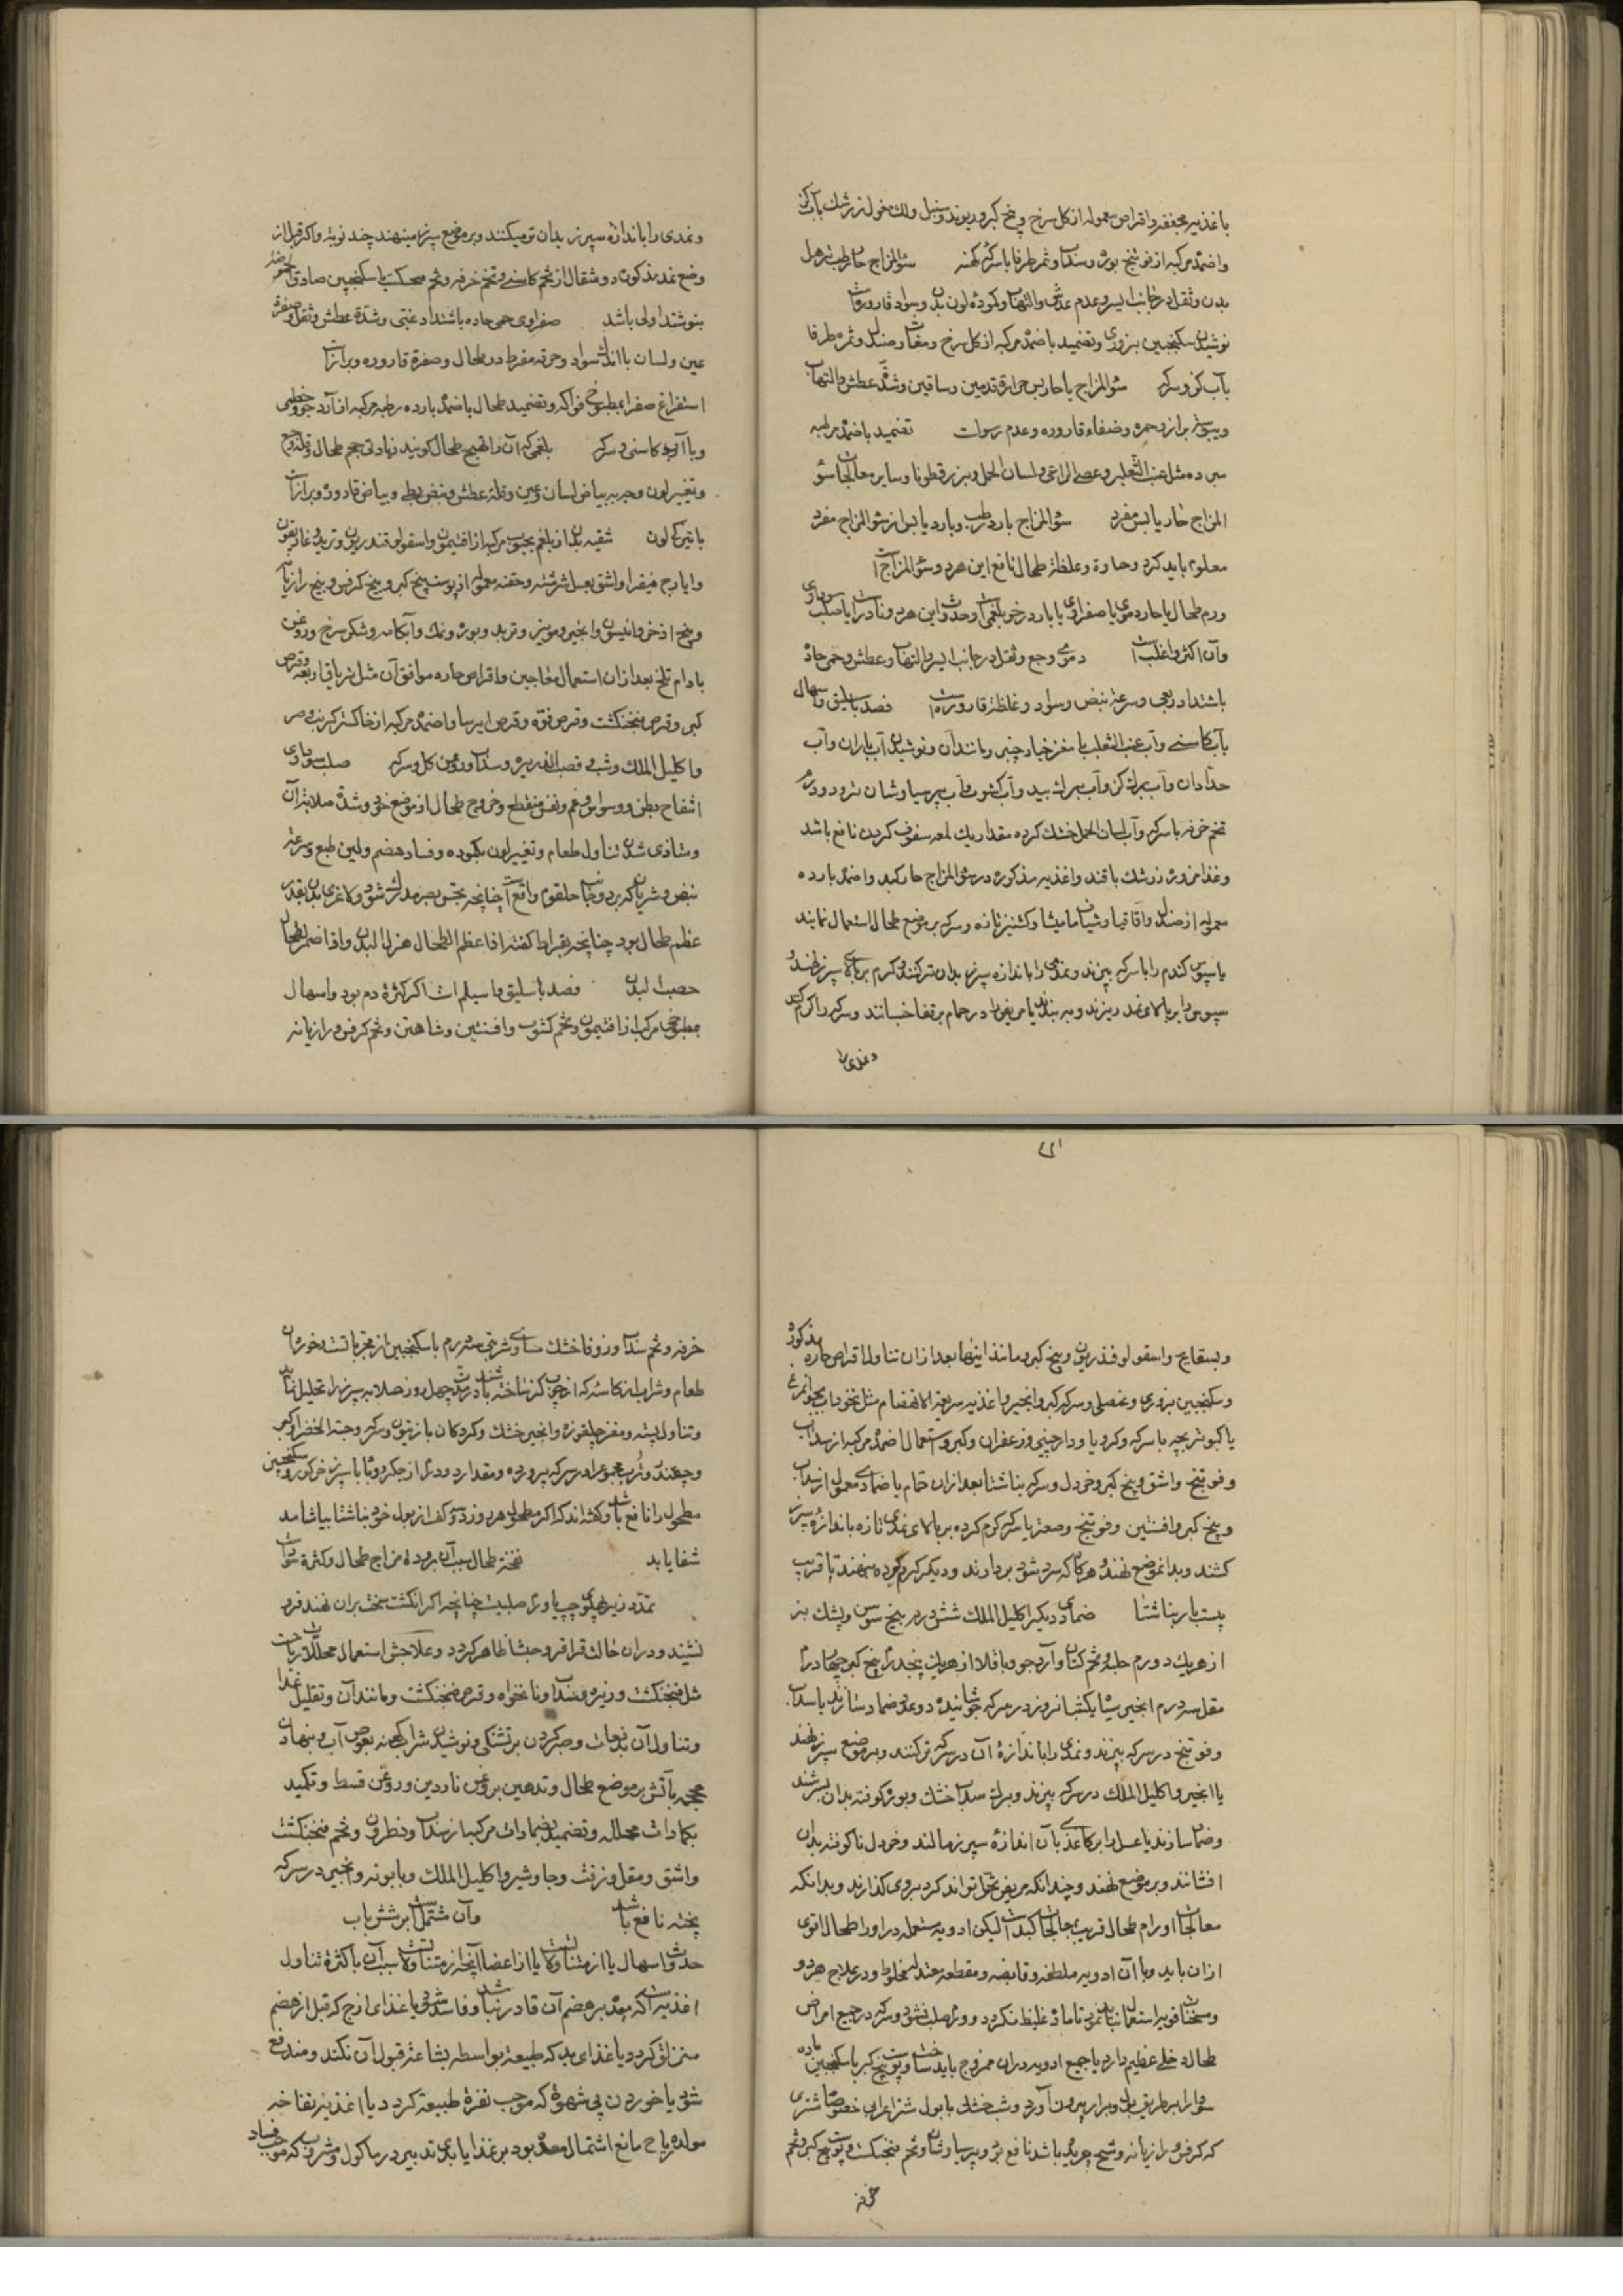 با غذیه مجففه و اقراص معموله از کل سرخ و بیخ کبر و ریوند و سنبل و لک مغول و زرشک بآب کرفس
واضمده مرکبه از فوتنج بوره و سنداب و ثمر طرفا با سرکه کهنه سؤ المزاج حار رطب ترهل
بدن و ثقل در جانب ایسر و عدم عطش و التهاب و کمودة لون بدن و سواد قاروره است
نوشیدن سکنجبین بزوری و تضمید باضمده مرکبه از کل سرخ و مغاث و صندل و ثمره طرفا
بآب کز و سرکه سؤ المزاج یا حار یابس حرارة قدمین و ساقین و شدة عطش و التهاب
و یبوسة براز و حمره و ضفاء قاروره و عدم رسوبات تضمید باضمده رطبه
مبرده مثل عنب الثعلب و عصی الراعی و لسان الحمل و بزر قطونا و سایر معالجات سؤ
المزاج حار یابس مفرد سؤ المزاج بارد رطب و بارد یابس از سؤ المزاج مفرد
معلوم باید کرد و حساوة و غلظة طحال تابع این هر دو سؤ المزاج است
ورم طحال یا حار دموی یا صفراوی یا بارد رخو بلغمی است و حدوث این هر دو نادر است یا صلب سوداوی
و آن اکثر و اغلب است دموی وجع و ثقل در جانب ایسر و التهاب و عطش و حمی حاده
باشتداد ربعی و سرعة نبض و سواد و غلظة قاروره است فصد باسلیق و اسهال
بآب کاسنی و آب عنب الثعلب با مغز خیار چنبر و مانند آن و نوشیدن آب باران و آب
حدادان و آب برک کز و آب برک بید و آب کشوث و آب پرسیاوشان تر و دو درم
تخم خرفه با سرکه و آب لسان الحمل خشک کرده مقدار یک لمعه سفوف کردن نافع باشد
و غذا مزوره زرشک با قند و اغذیه مذکوره در سؤ المزاج حار کبد و اضمده بارده
معموله از صندل و آقاقیا و شیاف مامیثا و کشنیز تازه و سرکه بر موضع طحال استعمال نمایند
یا سبوس کندم را با سرکه بپزند و نمدی را باندازه سپرز بدان تر کنند و کرم بر بالای سپرز نهند و
سبوس را بر بالای نمد ریزند و ببندند یا مریض را در حمام بر قفا خسبانند و سرکه را کرم کنند
و نمدی را
و نمدی را باندازه سپرز بدان تر میکنند و بر موضع سپرز مینهند چند نوبة و اکر قبل از
وضع نمد مذکور دو مثقال از تخم کاسنی و تخم خرفه و تخم سحکست با سکنجبین صادق الحموضه
بنوشند اولی باشد صفراوی حمی حاده باشتداد غبی و شدة عطش و ثقل و صفرة
عین و لسان با اندک سواد و حرقه مفرط در طحال و صفرة قاروره و براز است
استفراغ صفرا بمطبوخ فواکه و تضمید طحال باضمده بارده رطبه مرکبه از آرد جو و خطمی
و با آب کاسنی و سرکه بلغمی که آن را تهبج طحال کویند زیادتی حجم طحال و قلة وجع
و تغییر لون و جه به بیاض لسان و عین و قلة عطش و نبض بطی و بیاض قاروره و براز است
با تیرکی لون تنقیه بدن از بلغم بحبوب مرکبه از افتیمون و اسقولوقندریون و تربد و غاریقون
و ایارج فیقرا و اشق بعسل سرشته و حقنه معموله از پوست بیخ کبر و بیخ کرفس و بیخ رازیانه
و بیخ اذخر و انیسون و انجیر و مویز و تربد و بوره و نمک و آبکامه و شکر سرخ و روغن
بادام تلخ بعد از آن استعمال معاجین و اقراص حاره موافق آن مثل تریاق اربعه و قرص
کبر و قرص فنجنکشت و قرص فوه و قرص ایرسا و اضمده مرکبه از خاکستر کرنب و سر
و اکلیل الملک و شبت و قصب الذریره و سداب و روغن کل و سرکه صلب سوداوی
انتفاخ بطن و وسواس و غم و نفس منقطع و خروج طحال از موضع خود و شدة صلابة آن
و متاذی شدن تناول طعام و تغییر لون بکموده و فساد هضم و لین طبع و سرعة
نبض و شریان که بر دو جانب حلقوم واقع است چنانچه بحس بصر مدرک شود و لاغری بدن بقدر
عظم طحال بود چنانچه بقراط کفته اذا عظم الطحال هزل البدن و اذا ضمر الطحال
خصب البدن فصد باسلیق و اسیلم است اکر کثرة دم بود و اسهال
بمطبوخی مرکب از افتیمون و تخم کشوث و افسنتین و شاهتره و تخم کرفس و رازیانه
و بسفایج و اسقولوقندریون و بیخ کبر و مانند اینها بعد از آن تناول اقراص حاره مذکوره
و سکنجبین بزوری و عنصلی و سرکه کبر و انجیر و اغذیه سریعة الانهضام مثل نخوداب بجوزه مرغ
یا کبوتربچه با سرکه و کرویا و دارچینی و زعفران و کبر و استعمال اضمده مرکبه از سداب
و فوتنج و اشق و بیخ کبر و خردل و سرکه بناشتا بعد از آن حمام یا ضمادی معمول از سداب
و بیخ کبر و افسنتین و فوتنج و صعتر با سرکه کرم کرده بر بالای نمدی تازه باندازه سپرز
کشند و بدان موضع نهند و هرکاه که سرد شود بردارند و دیکر کرم کرده بنهند تا قریب
بیست بار بناشتا ضمادی دیکر اکلیل الملک شش درم بیخ سوسن و پشک بز
از هر یک دو درم حلبه و تخم کتان و آرد جو و باقلا از هر یک پنجدرم بیخ کبر چهار درم
مقل سه درم انجیر سیاه یکشبانروز در سرکه جوشانیده و عمل ضماد سازند یا سداب
و فوتنج در سرکه بپزند و نمدی را باندازه آن در سرکه تر کنند و بر موضع سپرز نهند
یا انجیر و اکلیل الملک در سرکه بپزند و برک سداب خشک و بوره کوفته بدان بسرشند
و ضماد سازند یا عسل را بر کاغذی بآن اندازه سپرز مالند و خردل ناکوفته بدان
افشانند و بر موضع نهند و چندانکه مریض تحمل تواند کرد بر وی کذارند و بدانکه
معالجات اورام طحال قریب بمعالجات کبد است لیکن ادویه مستعمله در اورام طحال اقوی
از آن باید و با آن ادویه ملطفه و قابضه و مقطعه معتدله مخلوط و در علاج هر دو
و مسخنات قویه استعمال نباید نمود تا ماده غلیظ نکردد و ورم صلب نشود و سرکه در جمیع امراض
طحال دخلی عظیم دارد با جمیع ادویه در آن ممزوج باید ساخت و پوست بیخ کبر با سکنجبین ماده
سودا را بطریق بول و براز بیرون آورد و شب خشک با بول شتر اعرابی خصوصا شتری
که کرفس و رازیانه و شیح چریده باشد نافع بود و پرسیاوشان و تخم فنجنکشت و پوست بیخ کبر و تخم
خرفه
خرفه و تخم سداب و زوفا خشک مساوی شربتی سه درم با سکنجبین از مجربات است و خوردن
طعام و شراب از کاسه که از چوب کز ساخته باشند در مدة چهل روز صلابه سپرز را تحلیل نماید
و تناول پسته و مغز چلقوزه و انجیر خشک و کردکان با زیتون و سرکه و حبة الخضرا و کبر
و چغندر و ترب مجموع را در سرکه پرورده و مقدار دو درم از جکر روباه با سپرز خر کور و سکنجبین
مطحول را نافع باشد و کفته‌اند که اکر مطحول هر روز دو کف از بول خود بناشتا بیاشامد
شفا یابد نفخة طحال سبب آن برودة مزاج طحال و کثرة سوداست
تمدد زیر پهلوی چپ باورم صلبیت چنانچه اکر انکشت سخت بران نهند فرو
نشیند و در آن حالت قراقر و جشا ظاهر کردد و علاجش استعمال محللات ریاح است
مثل فنجنکشت و زیره و سداب و نانخواه و قرص فنجنکشت و مانند آن و تقلیل غذا
و تناول آن بدفعات و صبر کردن بر تشنکی و نوشیدن شراب کهنه بعوض آب و نهادن
محجمه بآتش بر موضع طحال و تدهین بروغن ناردین و روغن قسط و تکمید
بکمادات محلله و تضمید بضمادات مرکبه از سداب و نطرون و تخم فنجنکشت
و اشق و مقل و زفت و جاوشیر و اکلیل الملک و بابونه و انجیر در سرکه
پخته نافع باشد و آن مشتمل است بر شش باب
حدوث اسهال یا از متناولات یا از اعضا آنچه از متناولاتست سبب آن یا کثرة تناول
اغذیه است که معده بر هضم آن قادر نباشد و فاسد شود یا غذای لزج که قبل از هضم
منزلق کردد یا غذای بد که طبیعة بواسطه بشاعة قبول آن نکند و مندفع
شود یا خوردن بی شهوة که موجب نفرة طبیعة کردد یا اغذیه نفاخه
مولده ریاح مانع اشتمال معده بود بر غذا یا بدی تدبیر در ماکول و مشروب که موجب فساد